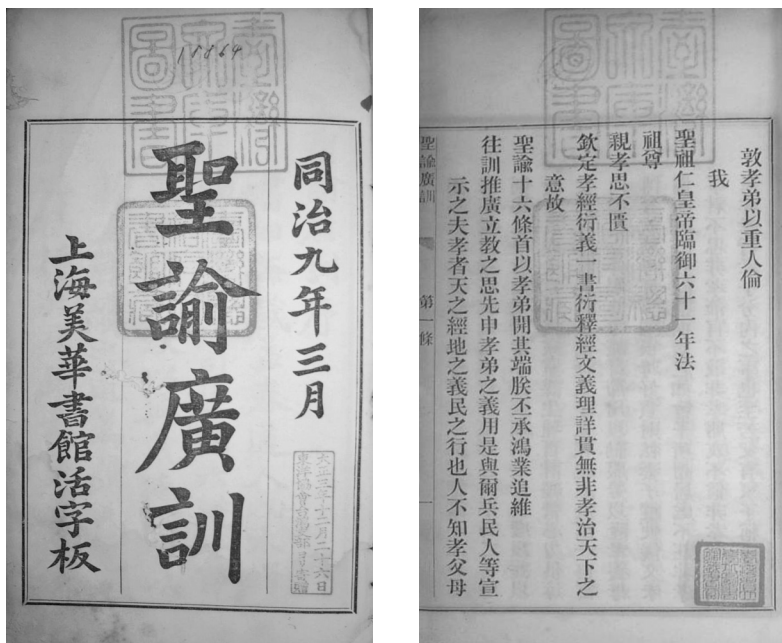 11864
同治九年三月
聖諭廣訓
上海美華書館活字板
敦孝弟以重人倫
我
聖祖仁皇帝臨御六十一年法
祖尊
親孝思不匱
欽定孝經衍義一書衍釋經文義理詳貫無非孝治天下之
意故
聖諭十六條首以孝弟開其端朕丕承鴻業追維
往訓推廣立教之思先申孝弟之義用是與爾兵民人等宣
示之夫孝者天之經地之義民之行也人不知孝父母
聖諭廣訓
第一條
一